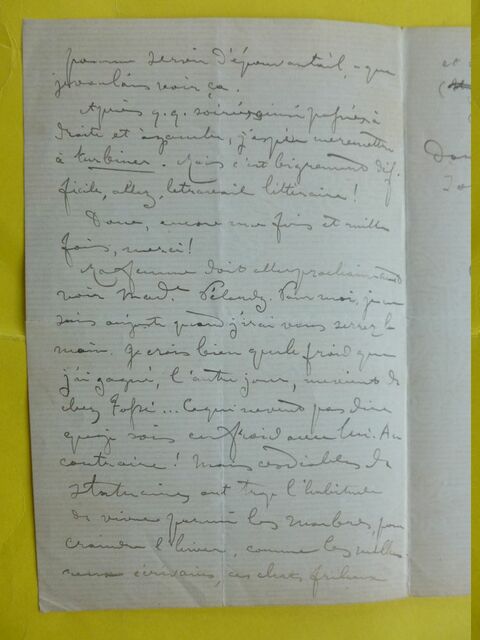 pour me servir d'épouvantail, — que
je voulais voir ça.
Après q.q. soirées ainsi passées à
droite et à gauche, j'espère me remettre
à turbiner. Mais c'est bigrement dif-
ficile, allez, le travail littéraire !
Donc, encore une fois et mille
fois, merci !
Ma femme doit aller prochainement
voir Mad.e Pour moi, je ne
sais au juste quand j'irai vous serrer la
main. Je crois bien que le froid que
j'ai gagné, l'autre jour, me vient de
chez ... Ce qui ne veut pas dire
que je sois en froid avec lui. Au
contraire ! Mais ces diables de
statuaires ont trop l'habitude
de vivre parmi les marbres, pour
craindre l'hiver, comme les
écrivains, ces chats frileux
et
Don